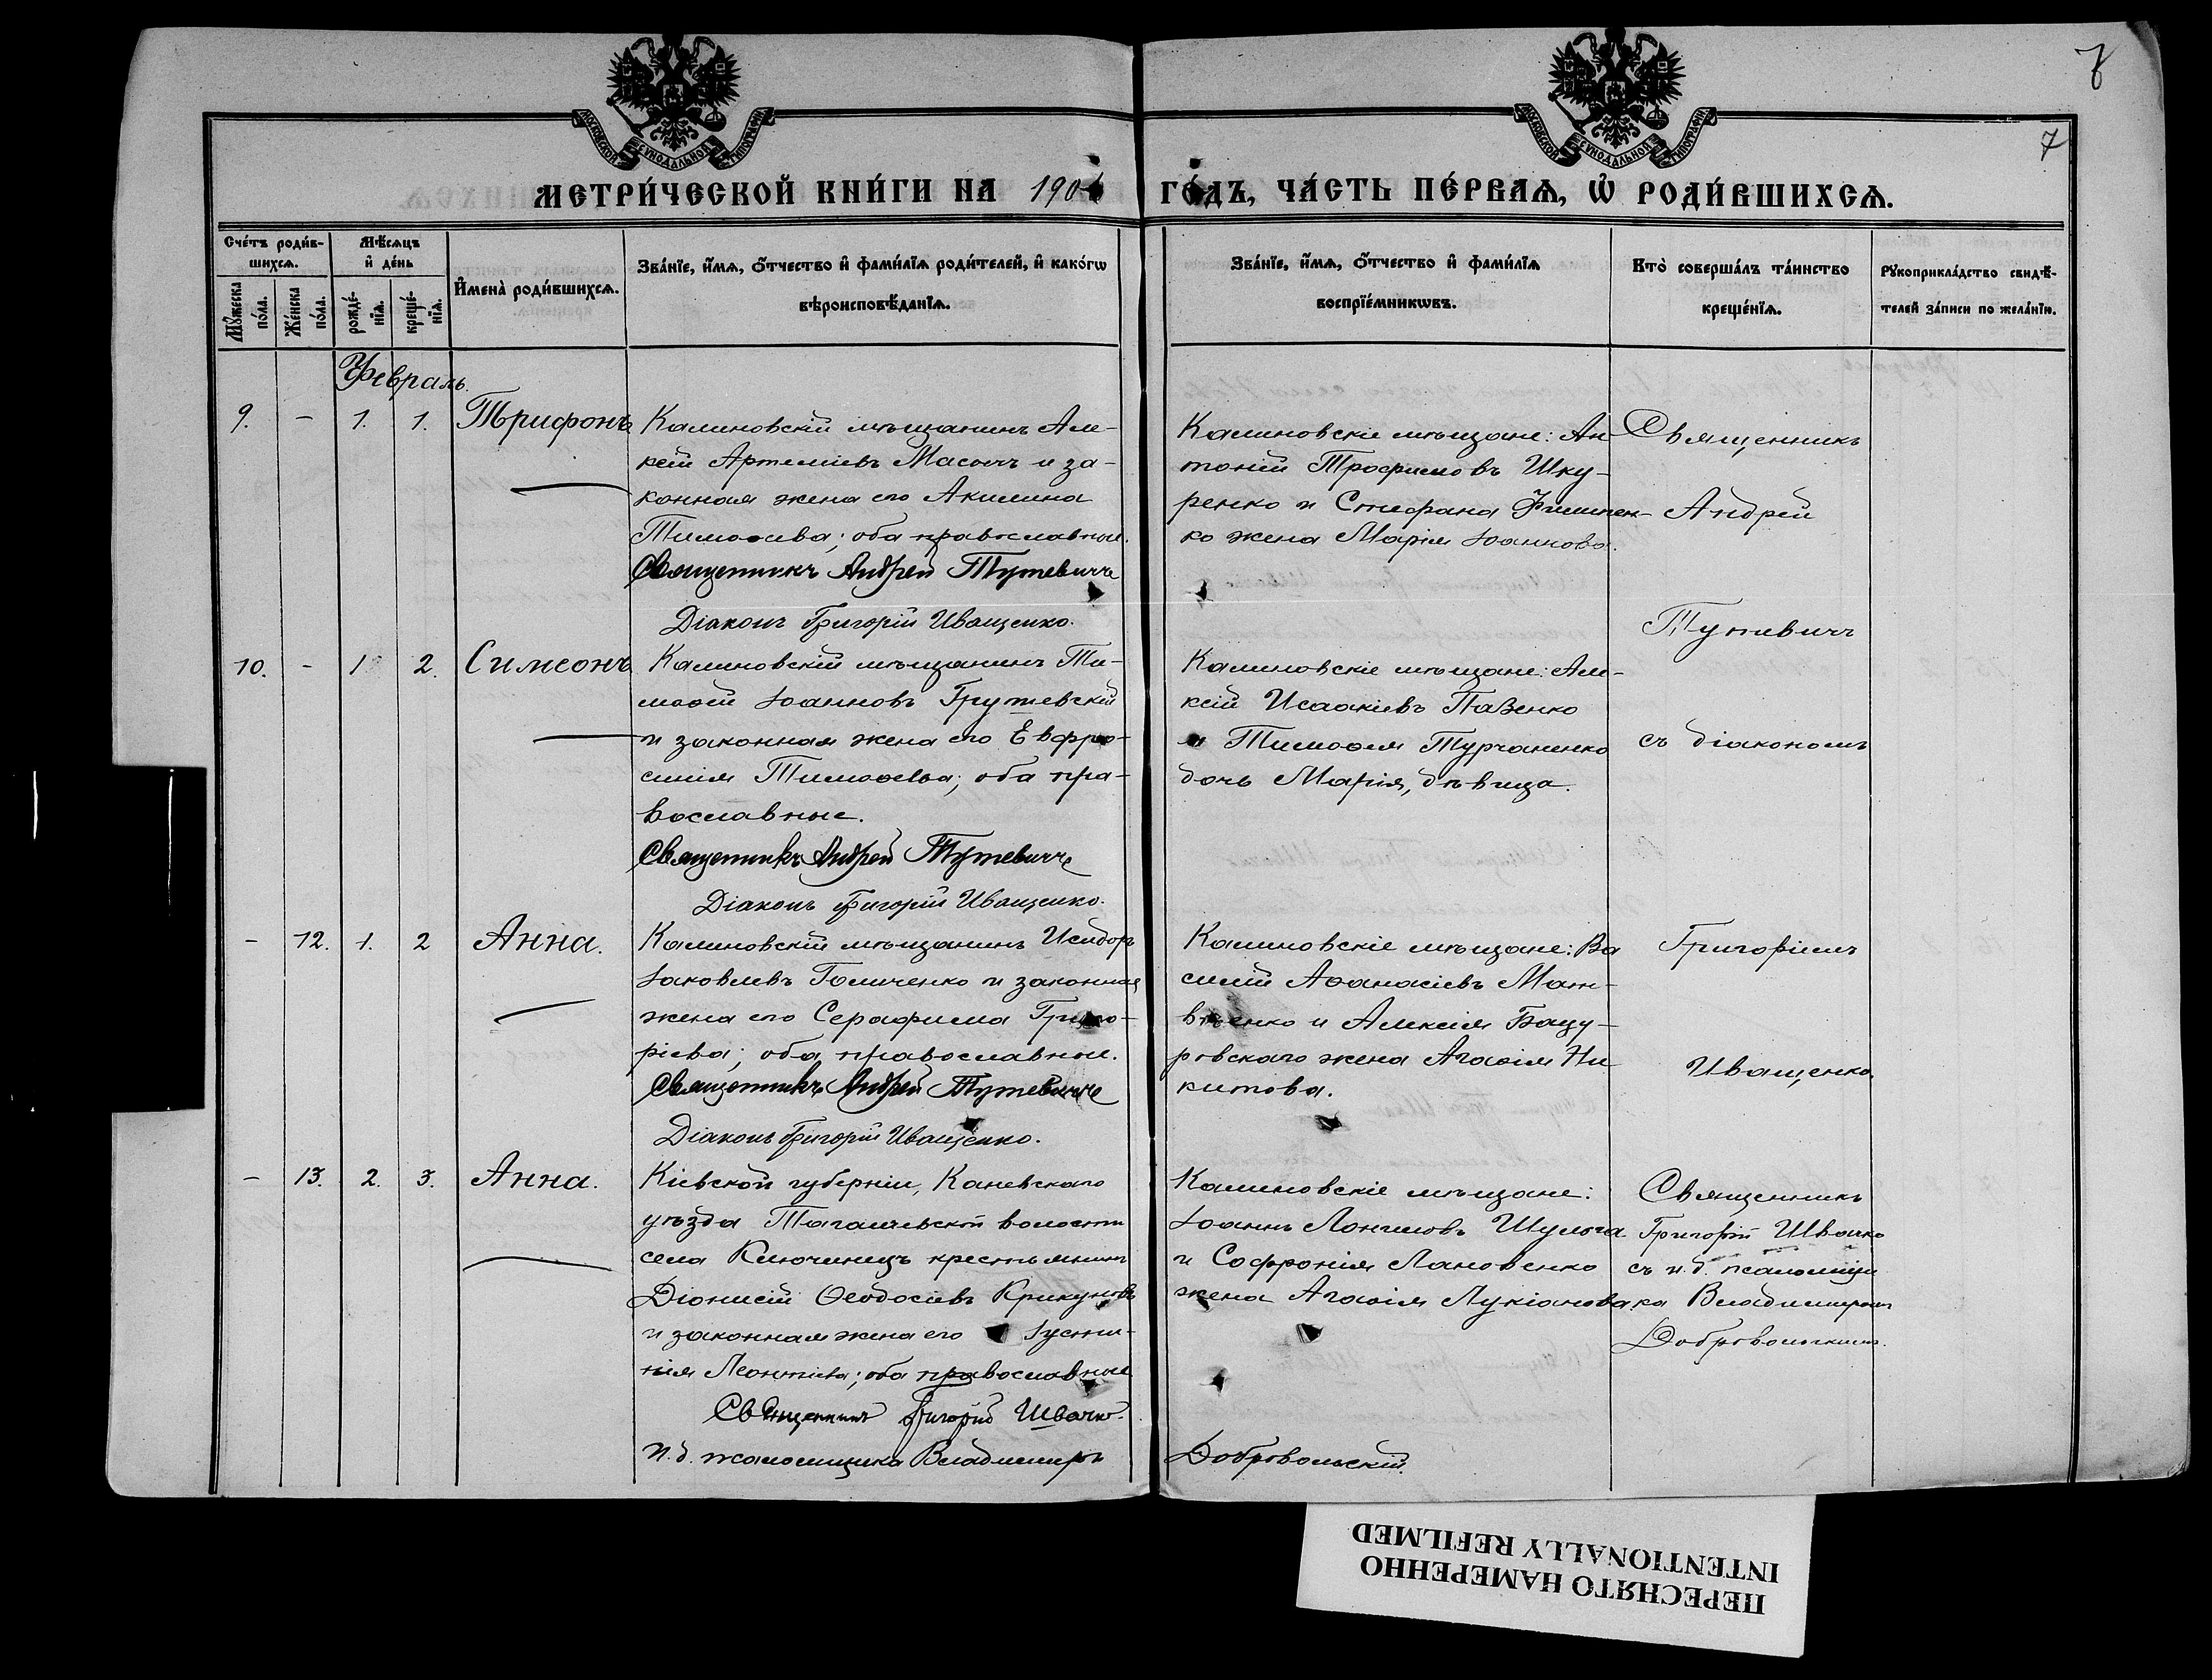 7
7
МОСКОВСКОЙ СѴНОДАЛЬНОЙ ТИПОГРАФІИ
МОСКОВСКОЙ СѴНОДАЛЬНОЙ ТИПОГРАФІИ
МЕТРИ́ЧЕСКОЙ КНИ́ГИ НА 190 ГО́ДЪ, ЧА́СТЬ ПЕ́РВАѦ, Ѡ҆ РОДИ́ВШИХСѦ.
Сче́тъ роди́в-
шихсѧ.
Мꙋ́жеска по́ла.
Же́нска по́ла.
Мѣ́сѧцъ
и҆ де́нь
рожде́-
нїѧ.
креще́-
нїѧ.
И҆мена̀ роди́вшихсѧ.
Зва́нїе, и҆́мѧ, ѻ҆́тчество и҆ фами́лїѧ роди́телей, и҆ како́гѡ
вѣроисповѣ́данїѧ.
Зва́нїе, и҆́мѧ, ѻ҆́тчество и҆ фами́лїѧ
воспрїе́мникѡвъ.
Кто̀ соверша́лъ та́инство
креще́нїѧ.
Рꙋкоприкла́дство свидѣ́-
телей за́писи по жела́нїю.
Февраль.
9. - 1. 1. Трифонъ
Калиновскій мѣщанинъ Але-
ксій Артеміевъ Масычъ и за-
конная жена его Акилина
Тимоѳеева; оба православные.
Священникъ Андрей Тутевичъ
Діаконъ Григорій Иващенко.
Калиновскіе мѣщане: Ан-
тоній Трофимовъ Шку-
ренко и Стефана Филипен-
ко жена Марія Іоаннова.
Священникъ
Андрей
Тутевичъ
съ діакономъ
Григоріемъ
Иващенко.
10. - 1 2. Симеонъ
Калиновскій мѣщанинъ Ти-
моѳей Іоанновъ Грушевскій
и законная жена его Евфро-
синія Тимоѳеева; оба пра-
вославные.
Священникъ Андрей Тутевичъ
Діаконъ Григорій Иващенко.
Калиновскіе мѣщане: Але-
ксій Исаакіевъ Пазенко
и Тимоѳея Турчаненко
дочь Марія, дѣвица.
- 12. 1. 2 Анна.
Калиновскій мѣщанинъ Исидоръ
Іаковлевъ Голиченко и законная
жена его Серафима Григо-
ріева; оба православные.
Священникъ Андрей Тутевичъ
Діаконъ Григорій Иващенко.
Калиновскіе мѣщане: Ва
силій Аѳанасіевъ Мат-
вѣенко и Алексія Бацу-
ровскаго жена Агаѳія Ни
китова.
- 13. 2. 3. Анна.
Кіевской губерніи, Каневскаго
уѣзда Таганчевской волости
села Ключницъ крестьянинъ
Діонисій Ѳеодосіевъ Крикуновъ
и законная жена его Іусти-
нія Леонтіева; оба православные
Священникъ Григорій Швачко.
и. д. псаломщика Владимиръ Добровольскій.
Калиновскіе мѣщане:
Іоаннъ Лонгиновъ Шулога
и Софронія Лановенко
жена Агаѳія Лукіанова.
Священникъ
Григорій Швачко
съ и. д. псаломщи
ка Владимиромъ
Добровольскимъ.
ПЕРЕСНЯТО НАМЕРЕННО
INTENTIONALLY REFILMED